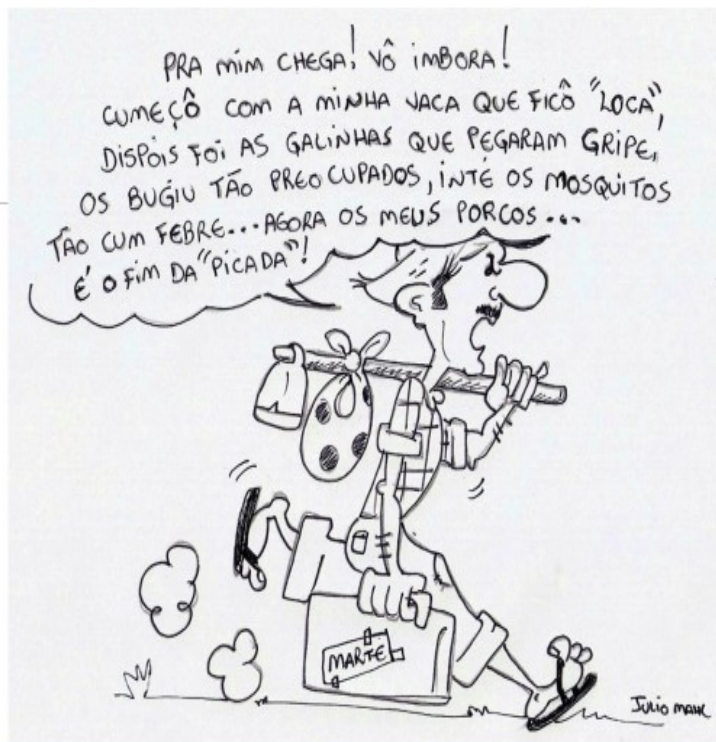 PRA MIM CHEGA! VÔ IMBORA!
CUMEÇÔ COM A MINHA VACA QUE FICÔ "LOCA",
DISPOIS FOI AS GALINHAS QUE PEGARAM GRIPE,
OS BUGIU TÃO PREOCUPADOS, INTÉ OS MOSQUITOS
TÃO CUM FEBRE... AGORA OS MEUS PORCOS...
É O FIM DA "PICADA"!
MARTE
JULIO MAHL